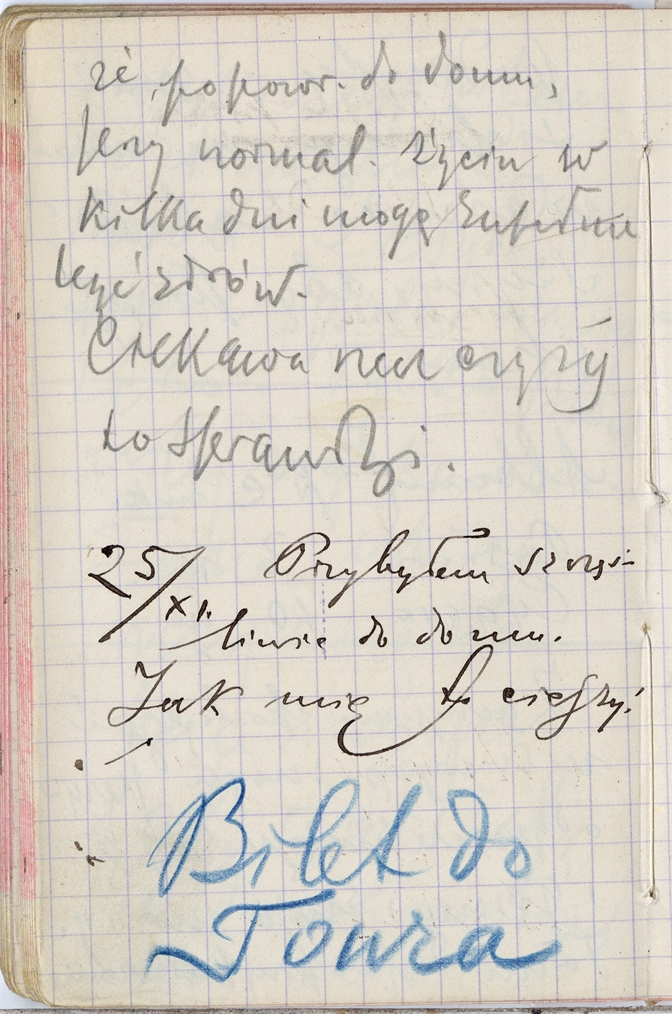 że, po powr. do domu,
przy normal. życiu w
kilka dni mogę zupełnie
być zdrów.
Ciekawa rzecz czy się
to sprawdzi.
25/XI. Przybyłem szczęś-
liwie do domu.
Jak mię to cieszy!
Bilet do